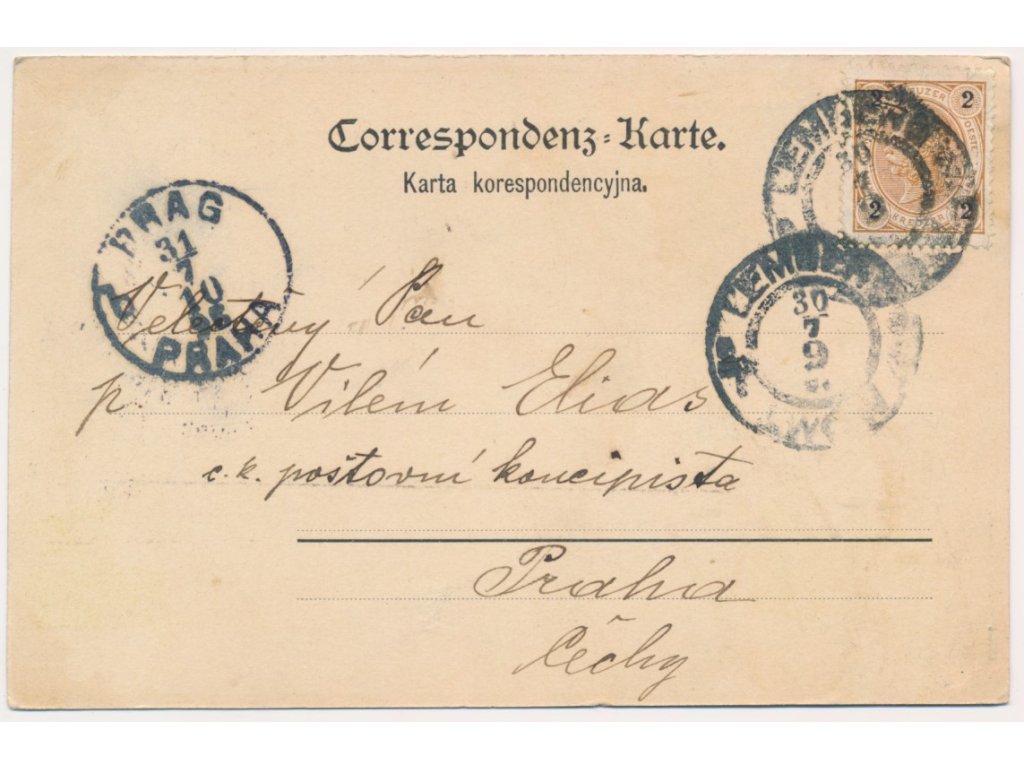 Correspondenz-Karte.
Karta korespondencyjna.
2 KREUZER 2
2 KREUZER 2
LEMBERG
30
LEMBERG
30
7
9
PRAG
31
7
10
PRAHA
Velectěný Pan
p. Vilém Elias
c. k. poštovní koncipista
Praha
Čechy